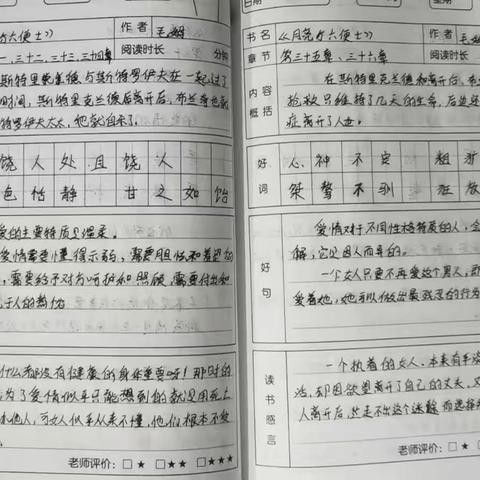 六便士》 作者 毛姆
三十二、三十三、三十四章 阅读时长 分钟
斯特里克兰德与斯特罗伊夫在一起过了
时间，斯特里克兰德后离开后，布兰奇也
特罗伊夫太太，她就自杀了。
饶人处且饶人
色 恬静 甘之如饴
爱的主要特质是温柔。
爱情需要懂得示弱，需要
，需要给予对方呵护和照顾，需要付出和
什么都没有健康的身体重要呀！那时的
为了爱情似乎只能想到的就只用死亡
他人，可女人似乎从来不懂，他们根本不爱
老师评价：□★ □★★ □★★★
日期
书名 《月亮与六便士》 作者 毛姆
章节 第三十五章、三十六章 阅读时长
内容概括
在斯特里克兰德离开后，布
抢救只维持了几天的生命，后还
症离开了人世。
好词
心神不安 粗
桀骜不驯 狂放
好句
爱情对于不同性格特质的人，会
解，它是因人而异的。
一个女人只要不再爱这个男人，即
爱着她，她可以做出最残忍的行为
读书感言
一个执着的女人，本来有
活，却因欲望离开了自己的丈夫，又
人离开后，还走不出这个迷 而选择
老师评价：□★